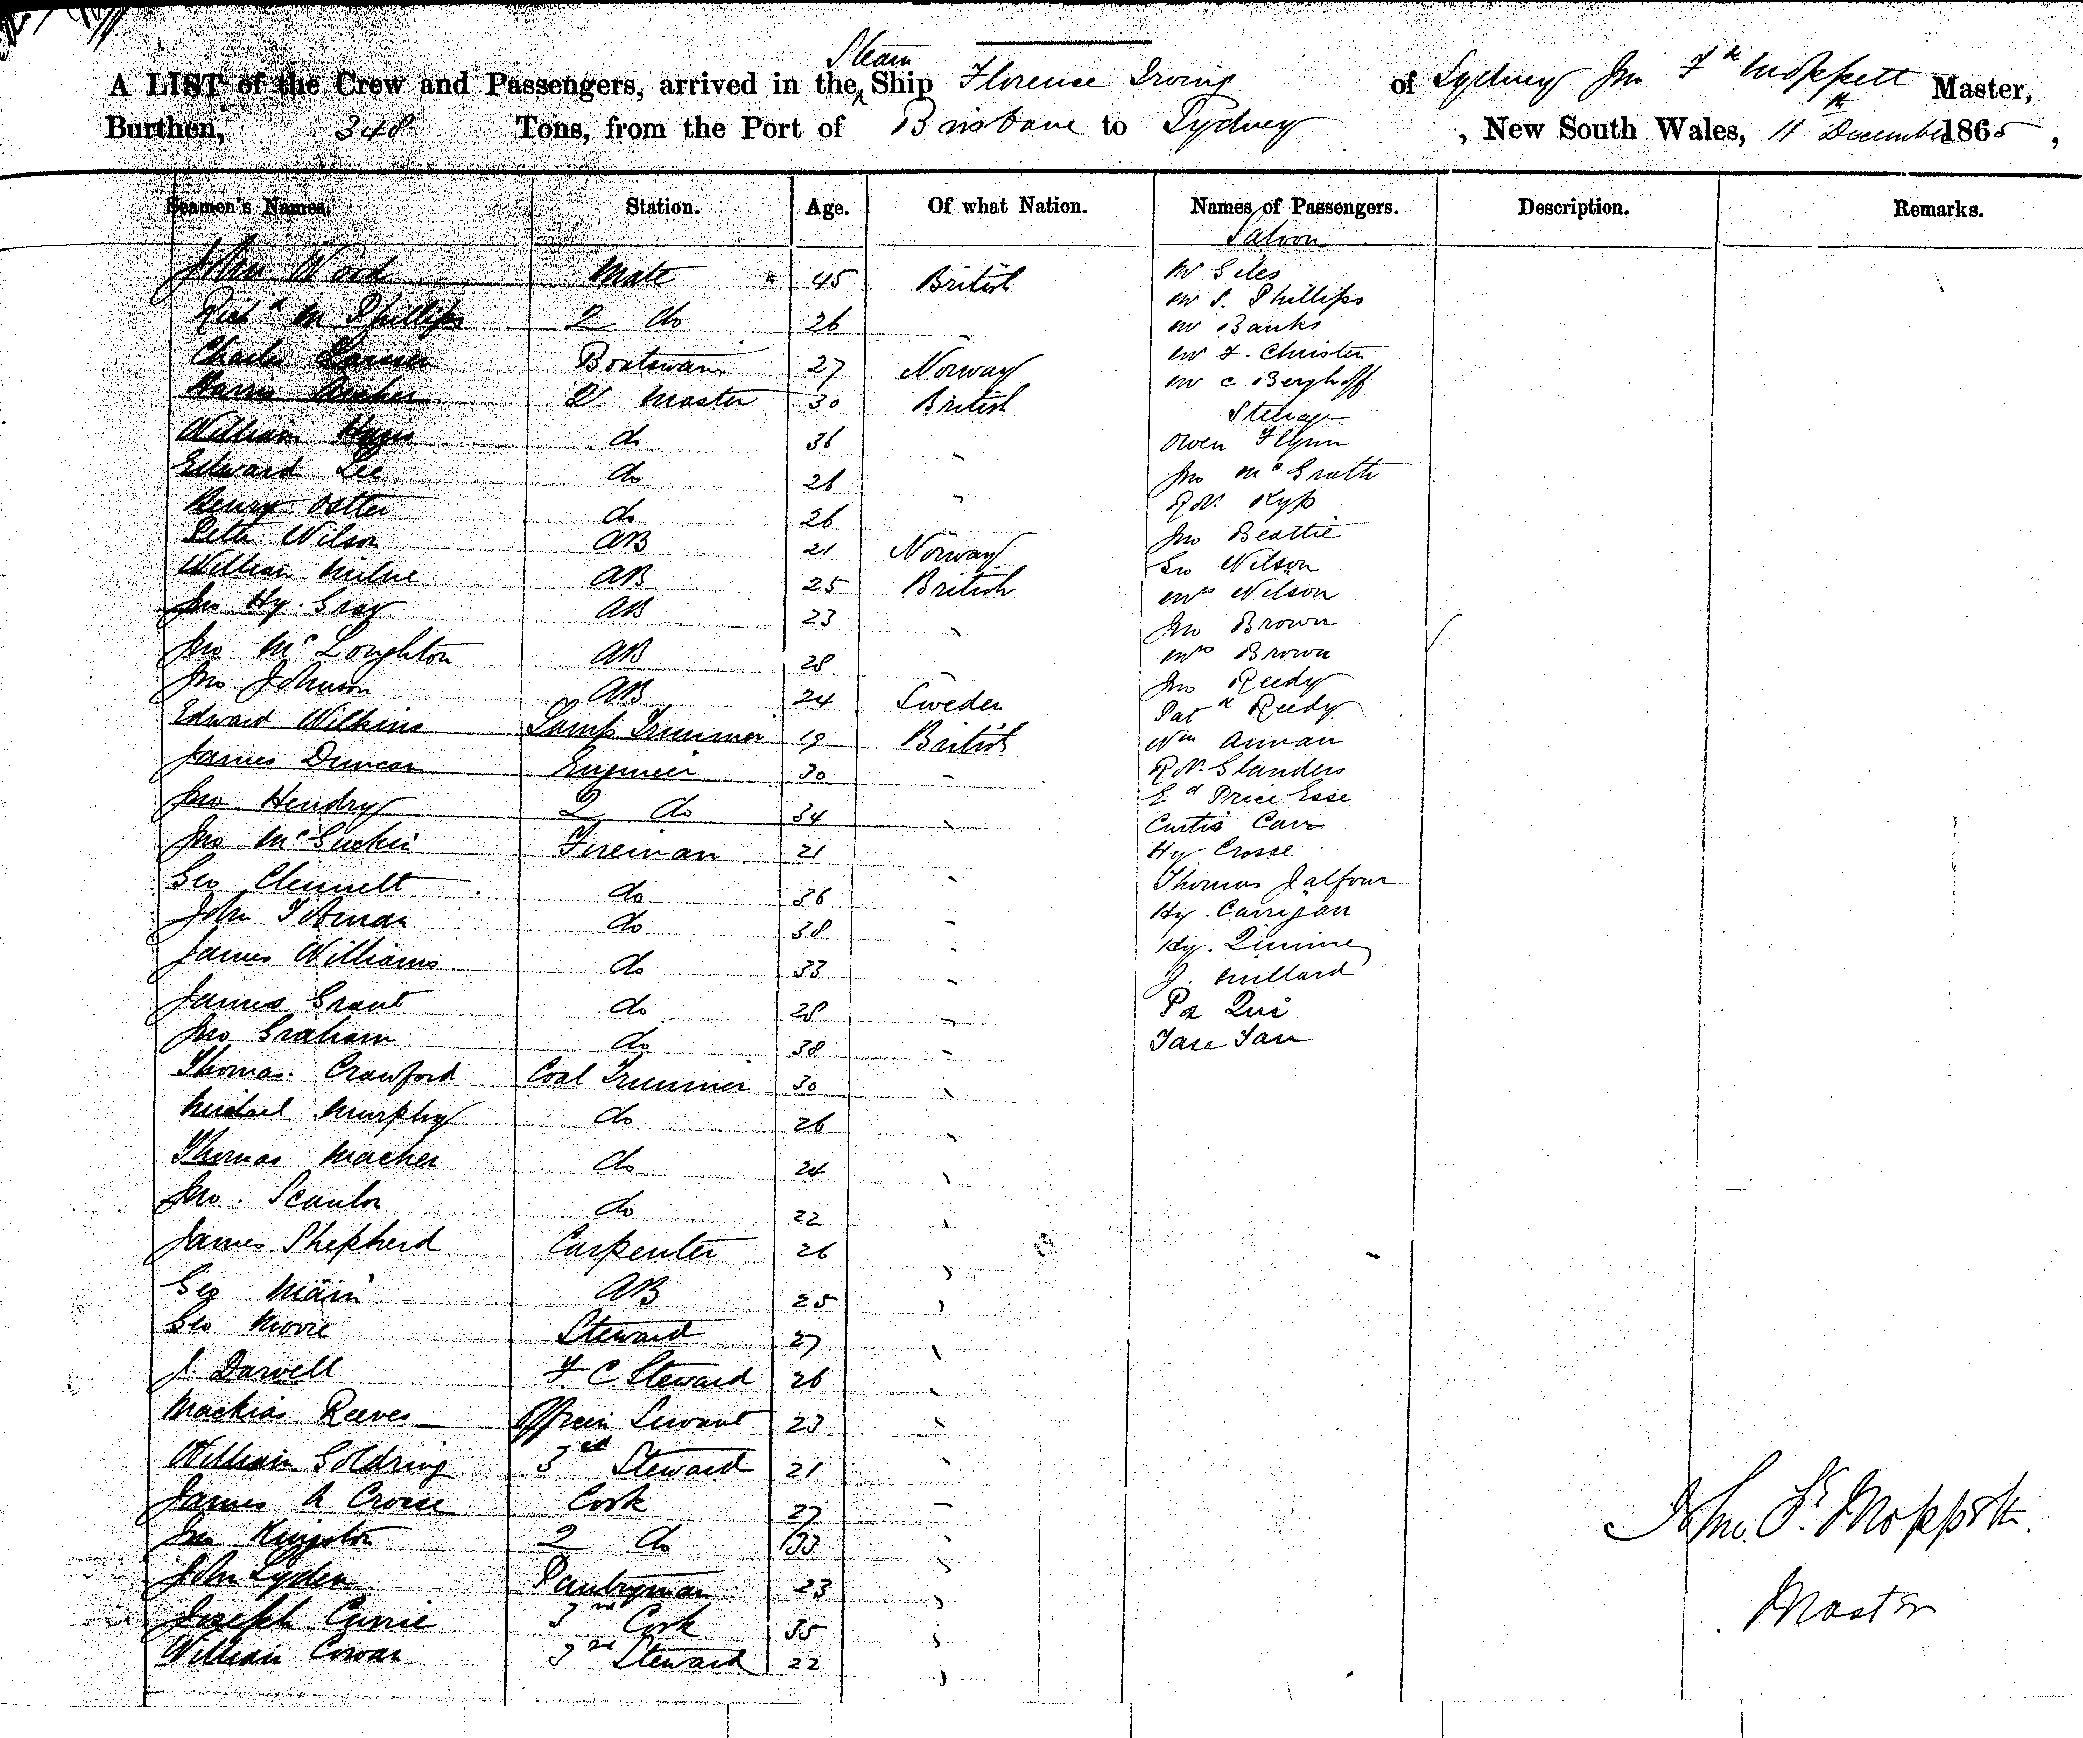 Steam
A LIST of the Crew and Passengers, arrived in the ^ Ship Florence Irving of Sydney Jno Fk Moppett Master,
Burthen, 348 Tons, from the Port of Brisbane to Sydney, New South Wales, 11th December 1865,
Seamen's Names. Station. Age. Of what Nation. Names of Passengers. Description. Remarks.
Saloon
John Wood Mate 45 British Mr Giles
Mr S. Phillips
Richd M Phillips 2 do 26 Mr Banks
Charles 27 Boatswain Norway Mr F. Christen
Mr C Berghoff
Harris Archer Qr Master 30 British Steerage
William Hayes do 36 " Owen Flynn
Edward Lee do 26 " Jno McGrath
Henry Ostler do 26 Kyp
Peter Wilson AB 21 Norway Jno Beattie
William Milne AB 25 British Geo Wilson
Mrs Wilson
Jno Hy. Gray AB 23 " Jno Brown
Jno McLoughton AB 28 Mrs Brown
Jno Johnson AB 24 Sweden Jno Reedy
Patk Reedy
Edward Wilkins Lamp Trimmer 19 British Wm Annan
James Duncan Engineer 30 " Glanders
Jno Hendry 2 do 34 " Ed Price Esse
Curtis Carr
Jno McGuckin Fireman 21 " Hy Crosse
Geo Clennett do 36 " Thomas Jalfour
John Totman do 38 " Hy. Carrigan
James Williams do 33 " Hy. Quinine
J. Millard
James Grant do 28 " Pa Qui
Jno Graham do 38 " Tase Tan
Thomas Crawford Coal Trimmer 30 "
Michael Murphy do 26 "
Thomas Macher do 24 "
Jno. Scanlon do 22 "
James Shepherd Carpenter 26 "
Geo Main AB 25 "
Geo Movie Steward 27 "
J. Darvell F. C. Steward 26 "
Mackias Reeves Officers Servant 23 "
William Goldring 3rd Steward 21 "
James A Crosse Cook 27 "
Jno Kingston 2 do 33 "
John Lyden Pantryman 23 "
Joseph Currie 3rd Cook 35 "
William Cowan 3rd Steward 22 "
Jno. Fk. Moppett
Master